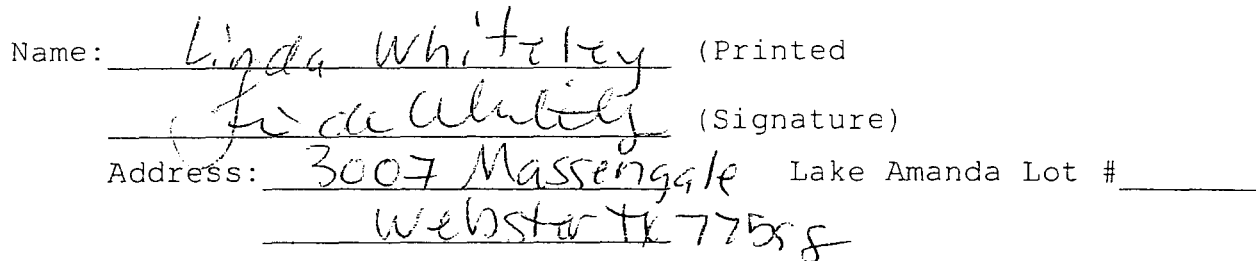 Name: Linda Whiteley (Printed
Linda Whiteley (Signature)
Address: 3007 Massengale Lake Amanda Lot #
Webster TX 77598